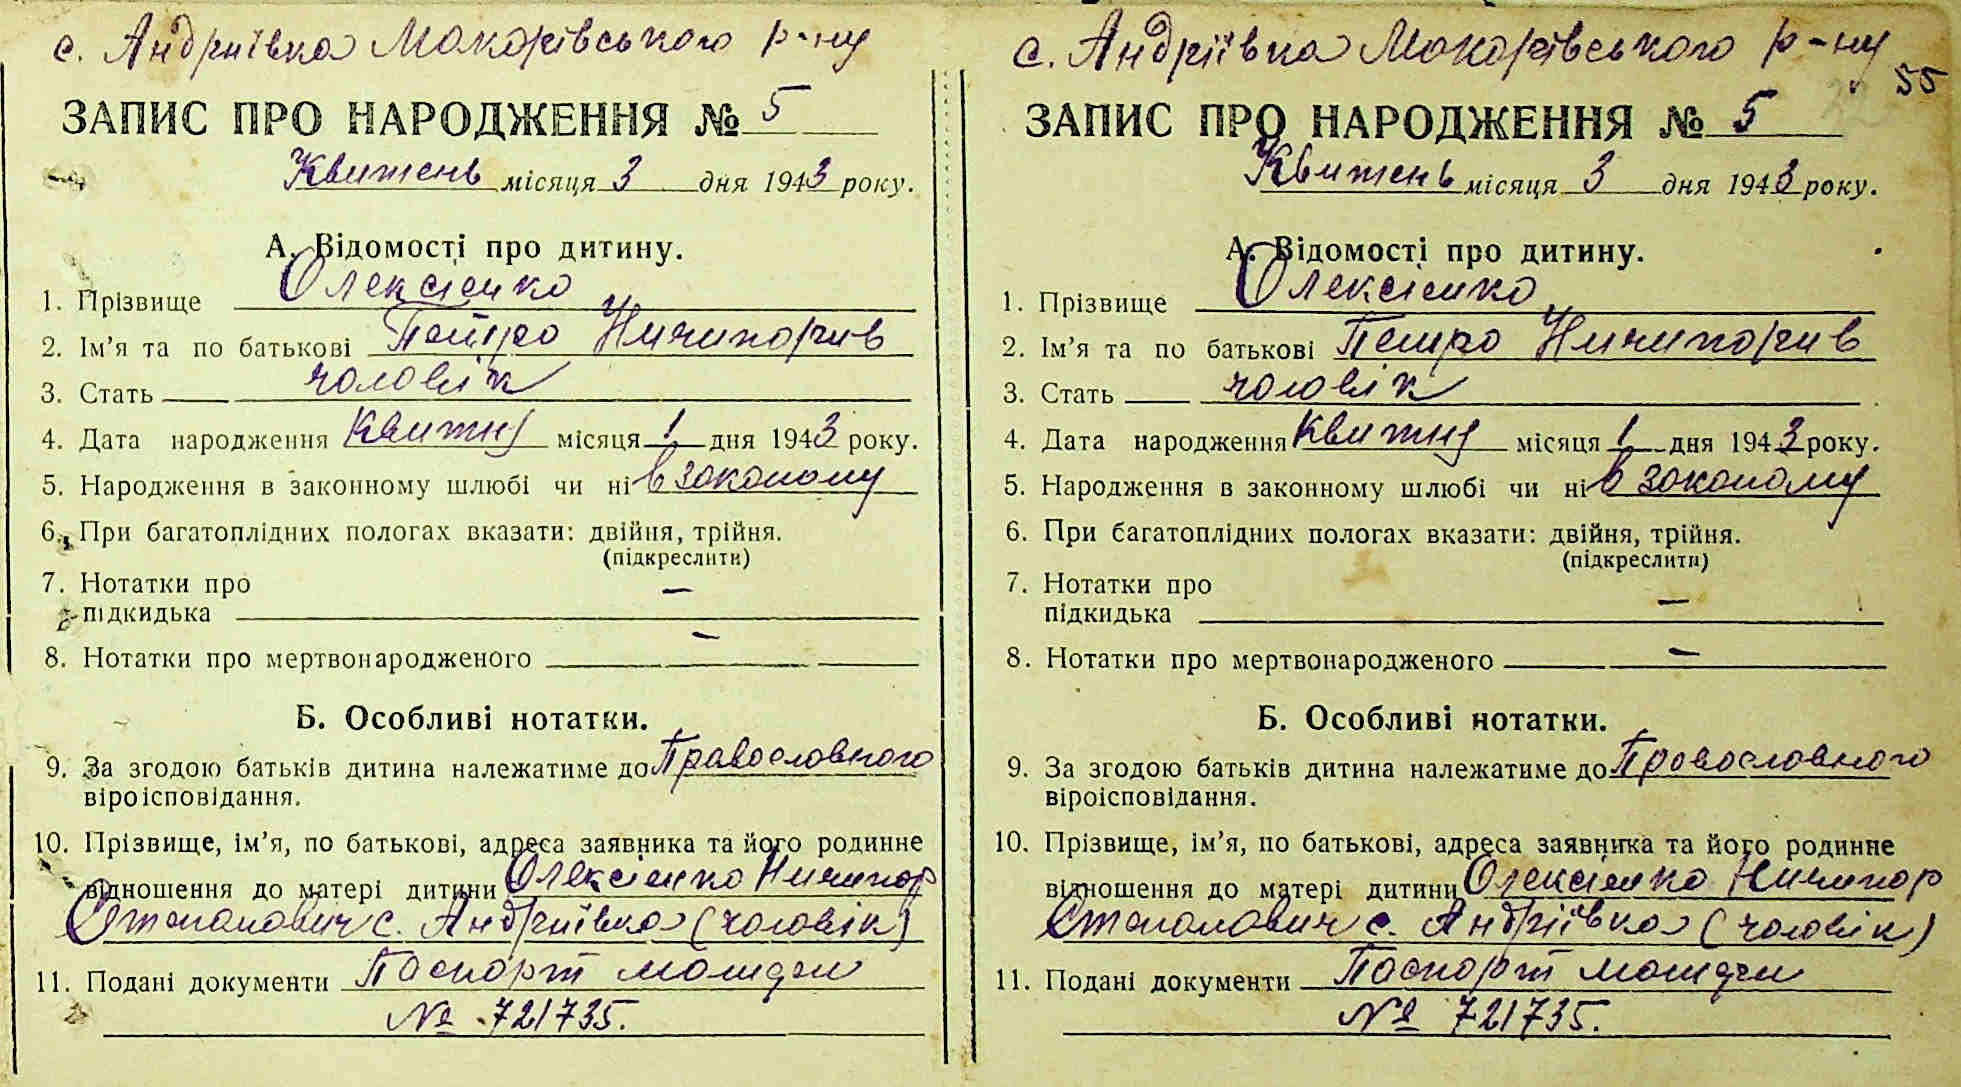 с. Андриївка Макарівського р-ну
ЗАПИС ПРО НАРОДЖЕННЯ № 5
Квитень місяця 3 дня 1943 року.
А. Відомості про дитину.
1. Прізвище Олексієнко
2. Ім'я та по батькові Петро Ничипорив
3. Стать чоловік
4. Дата народження Квитня місяця 1 дня 1943 року.
5. Народження в законному шлюбі чи ні в законому
6. При багатоплідних пологах вказати: двійня, трійня.
(підкреслити)
7. Нотатки про
підкидька —
8. Нотатки про мертвонародженого —
Б. Особливі нотатки.
9. За згодою батьків дитина належатиме до Православного
віроісповідання.
10. Прізвище, ім'я, по батькові, адреса заявника та його родинне
відношення до матері дитини Олексієнко Ничипор
Степанович с. Андриївка (чоловік)
11. Подані документи Паспорт
№ 721735.
с. Андріївка Макарівського р-ну
55
ЗАПИС ПРО НАРОДЖЕННЯ № 5
Квитень місяця 3 дня 1943 року.
А. Відомості про дитину.
1. Прізвище Олексієнко
2. Ім'я та по батькові Петро Ничипорив
3. Стать чоловік
4. Дата народження Квитня місяця 1 дня 1943 року.
5. Народження в законному шлюбі чи ні в законому
6. При багатоплідних пологах вказати: двійня, трійня.
(підкреслити)
7. Нотатки про
підкидька —
8. Нотатки про мертвонародженого —
Б. Особливі нотатки.
9. За згодою батьків дитина належатиме до Православного
віроісповідання.
10. Прізвище, ім'я, по батькові, адреса заявника та його родинне
відношення до матері дитини Олексієнко Ничипор
Степанович с. Андріївка (чоловік)
11. Подані документи Паспорт
№ 721735.